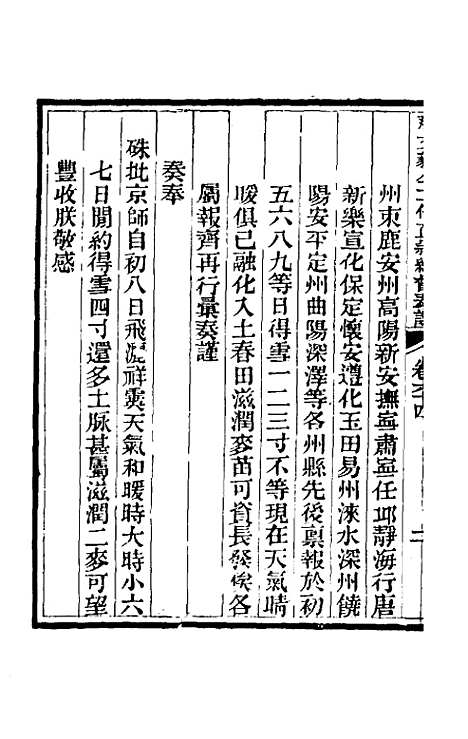 州束鹿安州高陽新安撫寧肅寧任邱靜海行唐
新樂宣化保定懷安遵化玉田易州淶水深州饒
陽安平定州曲陽深澤等各州縣先後禀報於初
五六八九等日得雪一二三寸不等現在天氣晴
暖俱已融化入土春田滋潤麥苗可資長發俟各
屬報齊再行彙奏謹
奏奉
硃批京師自初八日飛灑祥霙天氣和暖時大時小六
七日間約得雪四寸還多土脉甚屬滋潤二麥可望
豐收朕敬感